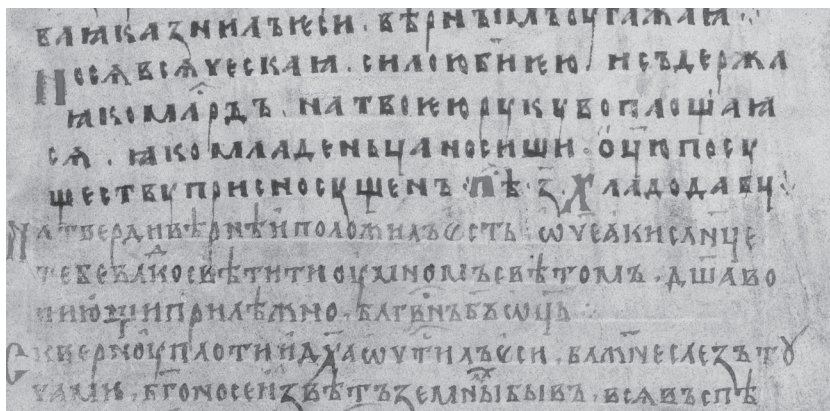 влꙗкаꙁнилъѥси . вѣрнъіимъоугажаꙗ ·.
Носѧвсѧчьскаꙗ . силоюб҃иѥю . исъдержа
ꙗкомл҃рдъ . натвоѥюрукувоплощаꙗ
сѧ . ꙗкомладеньцаносиши · оц҃юпосу
ществуприсносущенъ · п҃ѣ · з҃ · Хладодавч҃ .
Натвердивѣрнѣиположилъѥсть ѡч҃еꙗкислнце
тебевлкосвѣтитиоумномъсвѣтомъ . дш҃аво
пиющиприлѣжно . блг҃внъбъѡц҃ь
Сквернуплотиид҃хаѡч҃тилъѥси . блж҃неслезътꙋ
чами . бг҃оносеиꙁвѣтъꙁемныбывъ . всѧвъспѣ